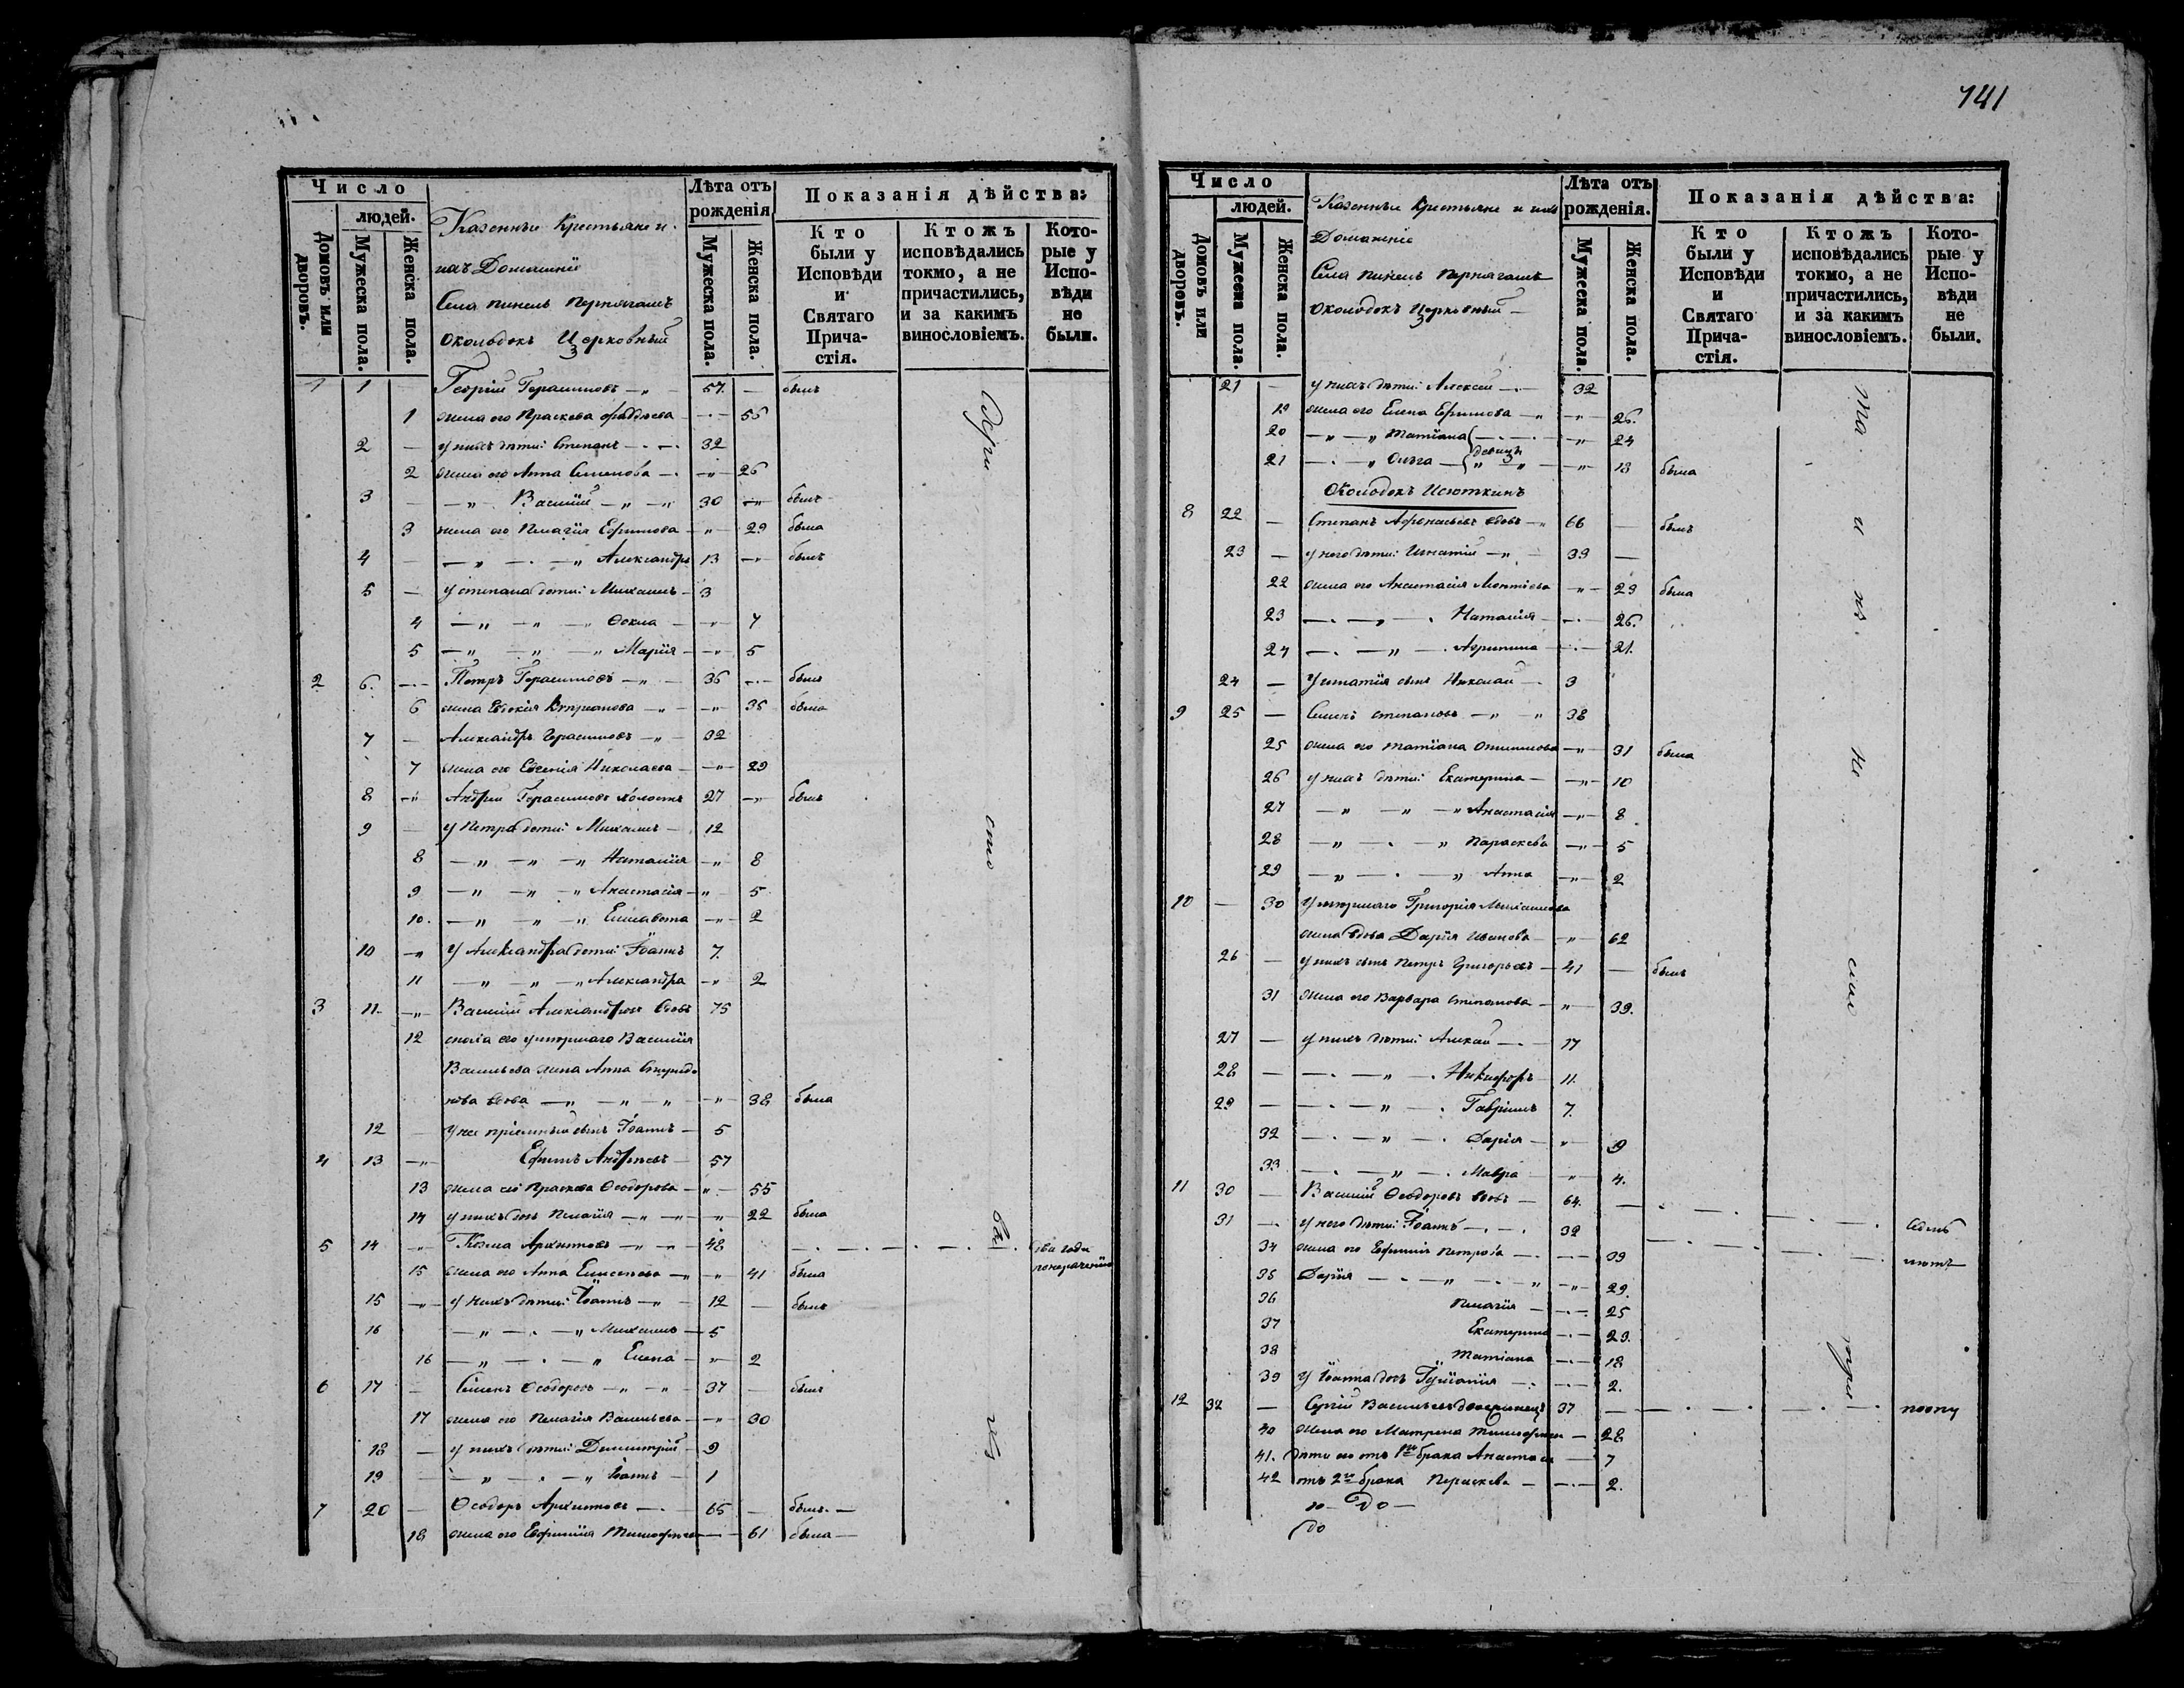 141
Число
людей.
Домовъ или дворовъ.
Мужеска пола.
Женска пола.
Казенные Крестьяне и
ихъ Домашніе
Села
Околодокъ Церковный
Лѣта отъ рожденія
Мужеска пола.
Женска пола.
Показанія дѣйства:
Кто были у Исповѣди и Святаго Причастія.
Ктожъ исповѣдались токмо, а не причастились, и за какимъ винословіемъ.
Которые у Исповѣди не были.
1 1 — Георгій Герасимовъ 57. — былъ
1 жена его Праскева Фаддѣева 55
2 — у нихъ дѣти: Степанъ 32
2 жена его Анна Семенова 26
3 — Василій 30 былъ
3 жена его Пелагія Ефимова 29 была
4 — Александръ 13 былъ
5 — у Степана дѣти: Михаилъ 3
4 Ѳекла 7
5 Марія 5
2 6. Петръ Герасимовъ 36 былъ
6 жена Евдокія 35 была
7 — Александръ Герасимовъ 32
7 жена его Евгенія Николаева 29
8 Андрей Герасимовъ холостъ 27 былъ
9 — у Петра дѣти: Михаилъ 12
8 Наталія 8
9 Анастасія 5
10. Елисавета 2
10 у Александра дѣти: Іоаннъ 7.
11 Александра 2
3 11. Василій Александровъ вдовъ 75
12 сноха его умершаго Василія
Васильева жена Анна
вдова 38 была
12 — у нее пріемный сынъ Іоаннъ 5
4 13 Ефимъ Андреевъ 57
13 жена его Праскева Ѳеодорова 55
14 у нихъ дочь Пелагія 22 была
5 14 Козма Архиповъ 48 два года
по нераченію
15 жена его Анна Елисеева 41 была
15 у нихъ дѣти: Іоаннъ 12 — былъ
16 Михаилъ 5
16 Елена 2
6 17 — Семенъ Ѳеодоровъ 37 — былъ
17 жена его Пелагія Васильева 30
18 — у нихъ дѣти: Димитрій 9
19 Іоаннъ 1
7 20 — Ѳеодоръ Архиповъ 65 — былъ
18 жена его Евфимія Тимофеева 61 была
Число
людей.
Домовъ или дворовъ.
Мужеска пола.
Женска пола.
Казенные Крестьяне и ихъ
Домашніе
Села
Околодокъ Церковный
Лѣта отъ рожденія.
Мужеска пола.
Женска пола.
Показанія дѣйства:
Кто были у Исповѣди и Святаго Причастія.
Ктожъ исповѣдались токмо, а не причастились, и за какимъ винословіемъ.
Которые у Исповѣди не были.
21 — у нихъ дѣти: Алексей 32
19 жена его Елена Ефимова 26.
20 Татіана 24
21 Ольга девицы 18 была
Околодокъ Исюткинъ
8 22 — Степанъ Афанасьевъ вдовъ 66 — былъ
23 — у него дѣти: Игнатій 33 —
22 жена его Анастасія 29 была
23 Наталія 26.
24 21.
24 — у Игнатія сынъ Николай 3
9 25 — Семенъ Степановъ 38
25 жена его Татіана 31 была
26 у нихъ дѣти: Екатерина 10
27 Анастасія 8
28 Параскева 5
29 Анна 2
10 — 30 умершаго Григорія
жена вдова Дарія Иванова 62
26 — у нихъ сынъ Петръ Григорьевъ 41 — былъ
31 жена его Варвара Степанова 39.
27 — у нихъ дѣти: Алексей 17
28 — Никифоръ 11.
29 — Гавріилъ 7.
32 Дарія 9
33 Мавра 4.
11 30 — Василій Ѳеодоровъ вдовъ 64. семь
31 — у него дѣти: Іоаннъ 32 лѣтъ
34 жена его Евфимія Петрова 33
35 Дарія 29.
36 Пелагія 25
37 Екатерина 23.
38 Татіана 18
39 у Іоанна дочь Іуліанія 2.
12 32 — Сергій Васильевъ 37
40 жена его Матрена Тимофеева 28
41. дѣти его отъ 1го брака Анастасія 7
42 отъ 2го брака Параскева 2.